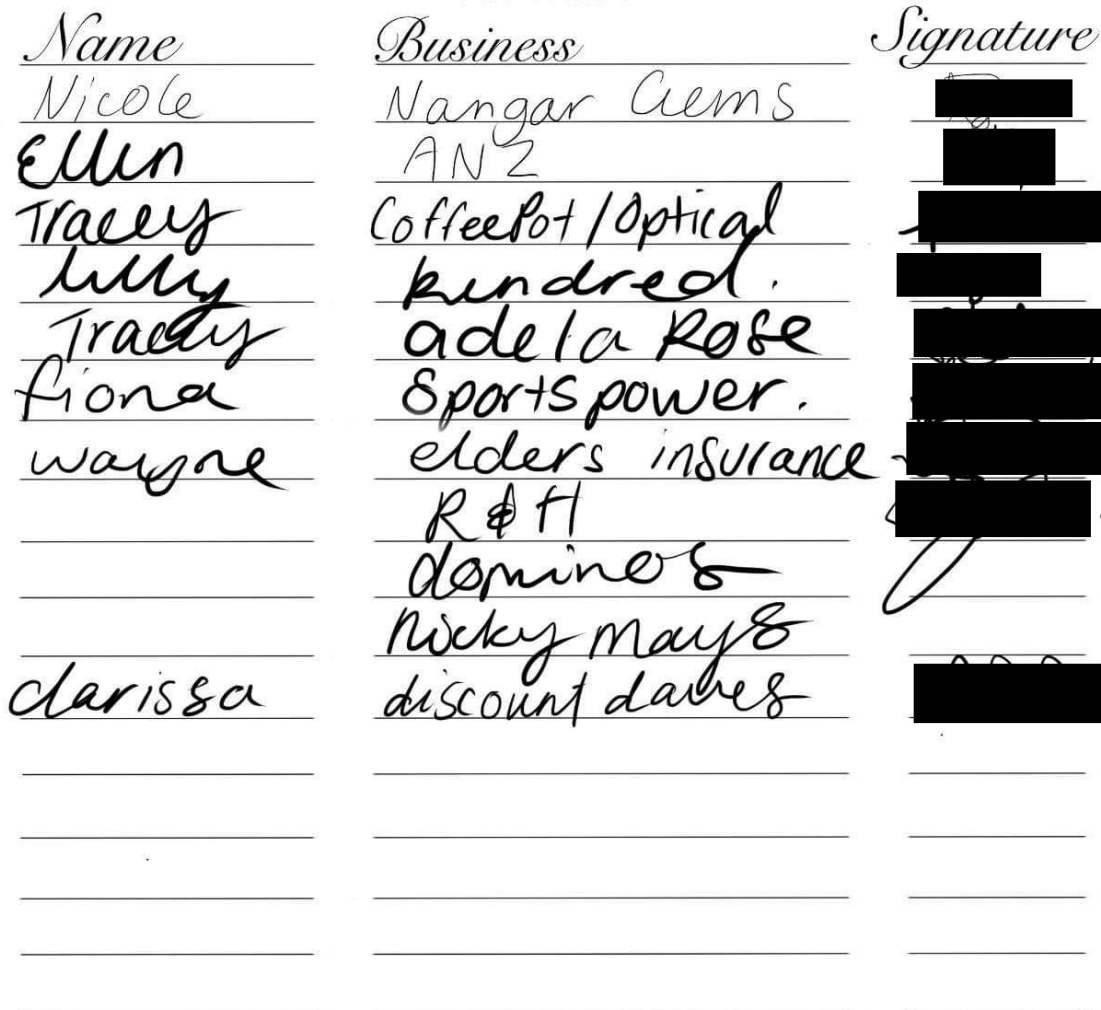 Name Business Signature
Nicole Nangar Gems
Ellen ANZ
Tracey CoffeePot / Optical
Lilly kindred.
Tracey adela Rose
fiona Sportspower.
wayne elders insurance
R & H
dominos
Nicky Mays
clarissa discount daves